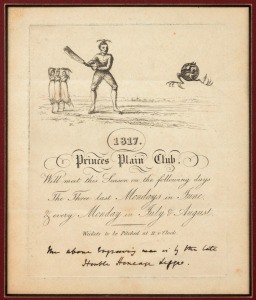 1817.
Princes Plain Club.
Will meet this Season on the following days
The Three last Mondays in June,
& every Monday in July & August.
Wickets to be Pitched at 11 o'Clock.
The above Engraving was by the late
Honble